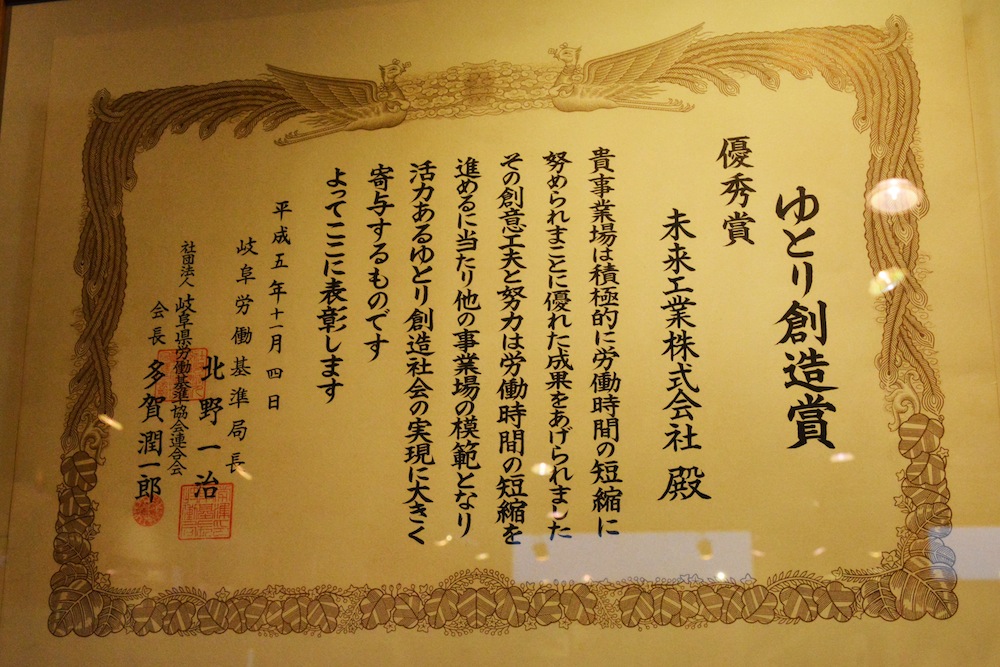 ゆとり創造賞
優秀賞
未来工業株式会社 殿
貴事業場は積極的に労働時間の短縮に
努められまことに優れた成果をあげられました
その創意工夫と努力は労働時間の短縮を
進めるに当たり他の事業場の模範となり
活力あるゆとり創造社会の実現に大きく
寄与するものです
よってここに表彰します
平成五年十一月四日
岐阜労働基準局長
北野一治
社団法人 岐阜県労働基準協会連合会
会長 多賀潤一郎